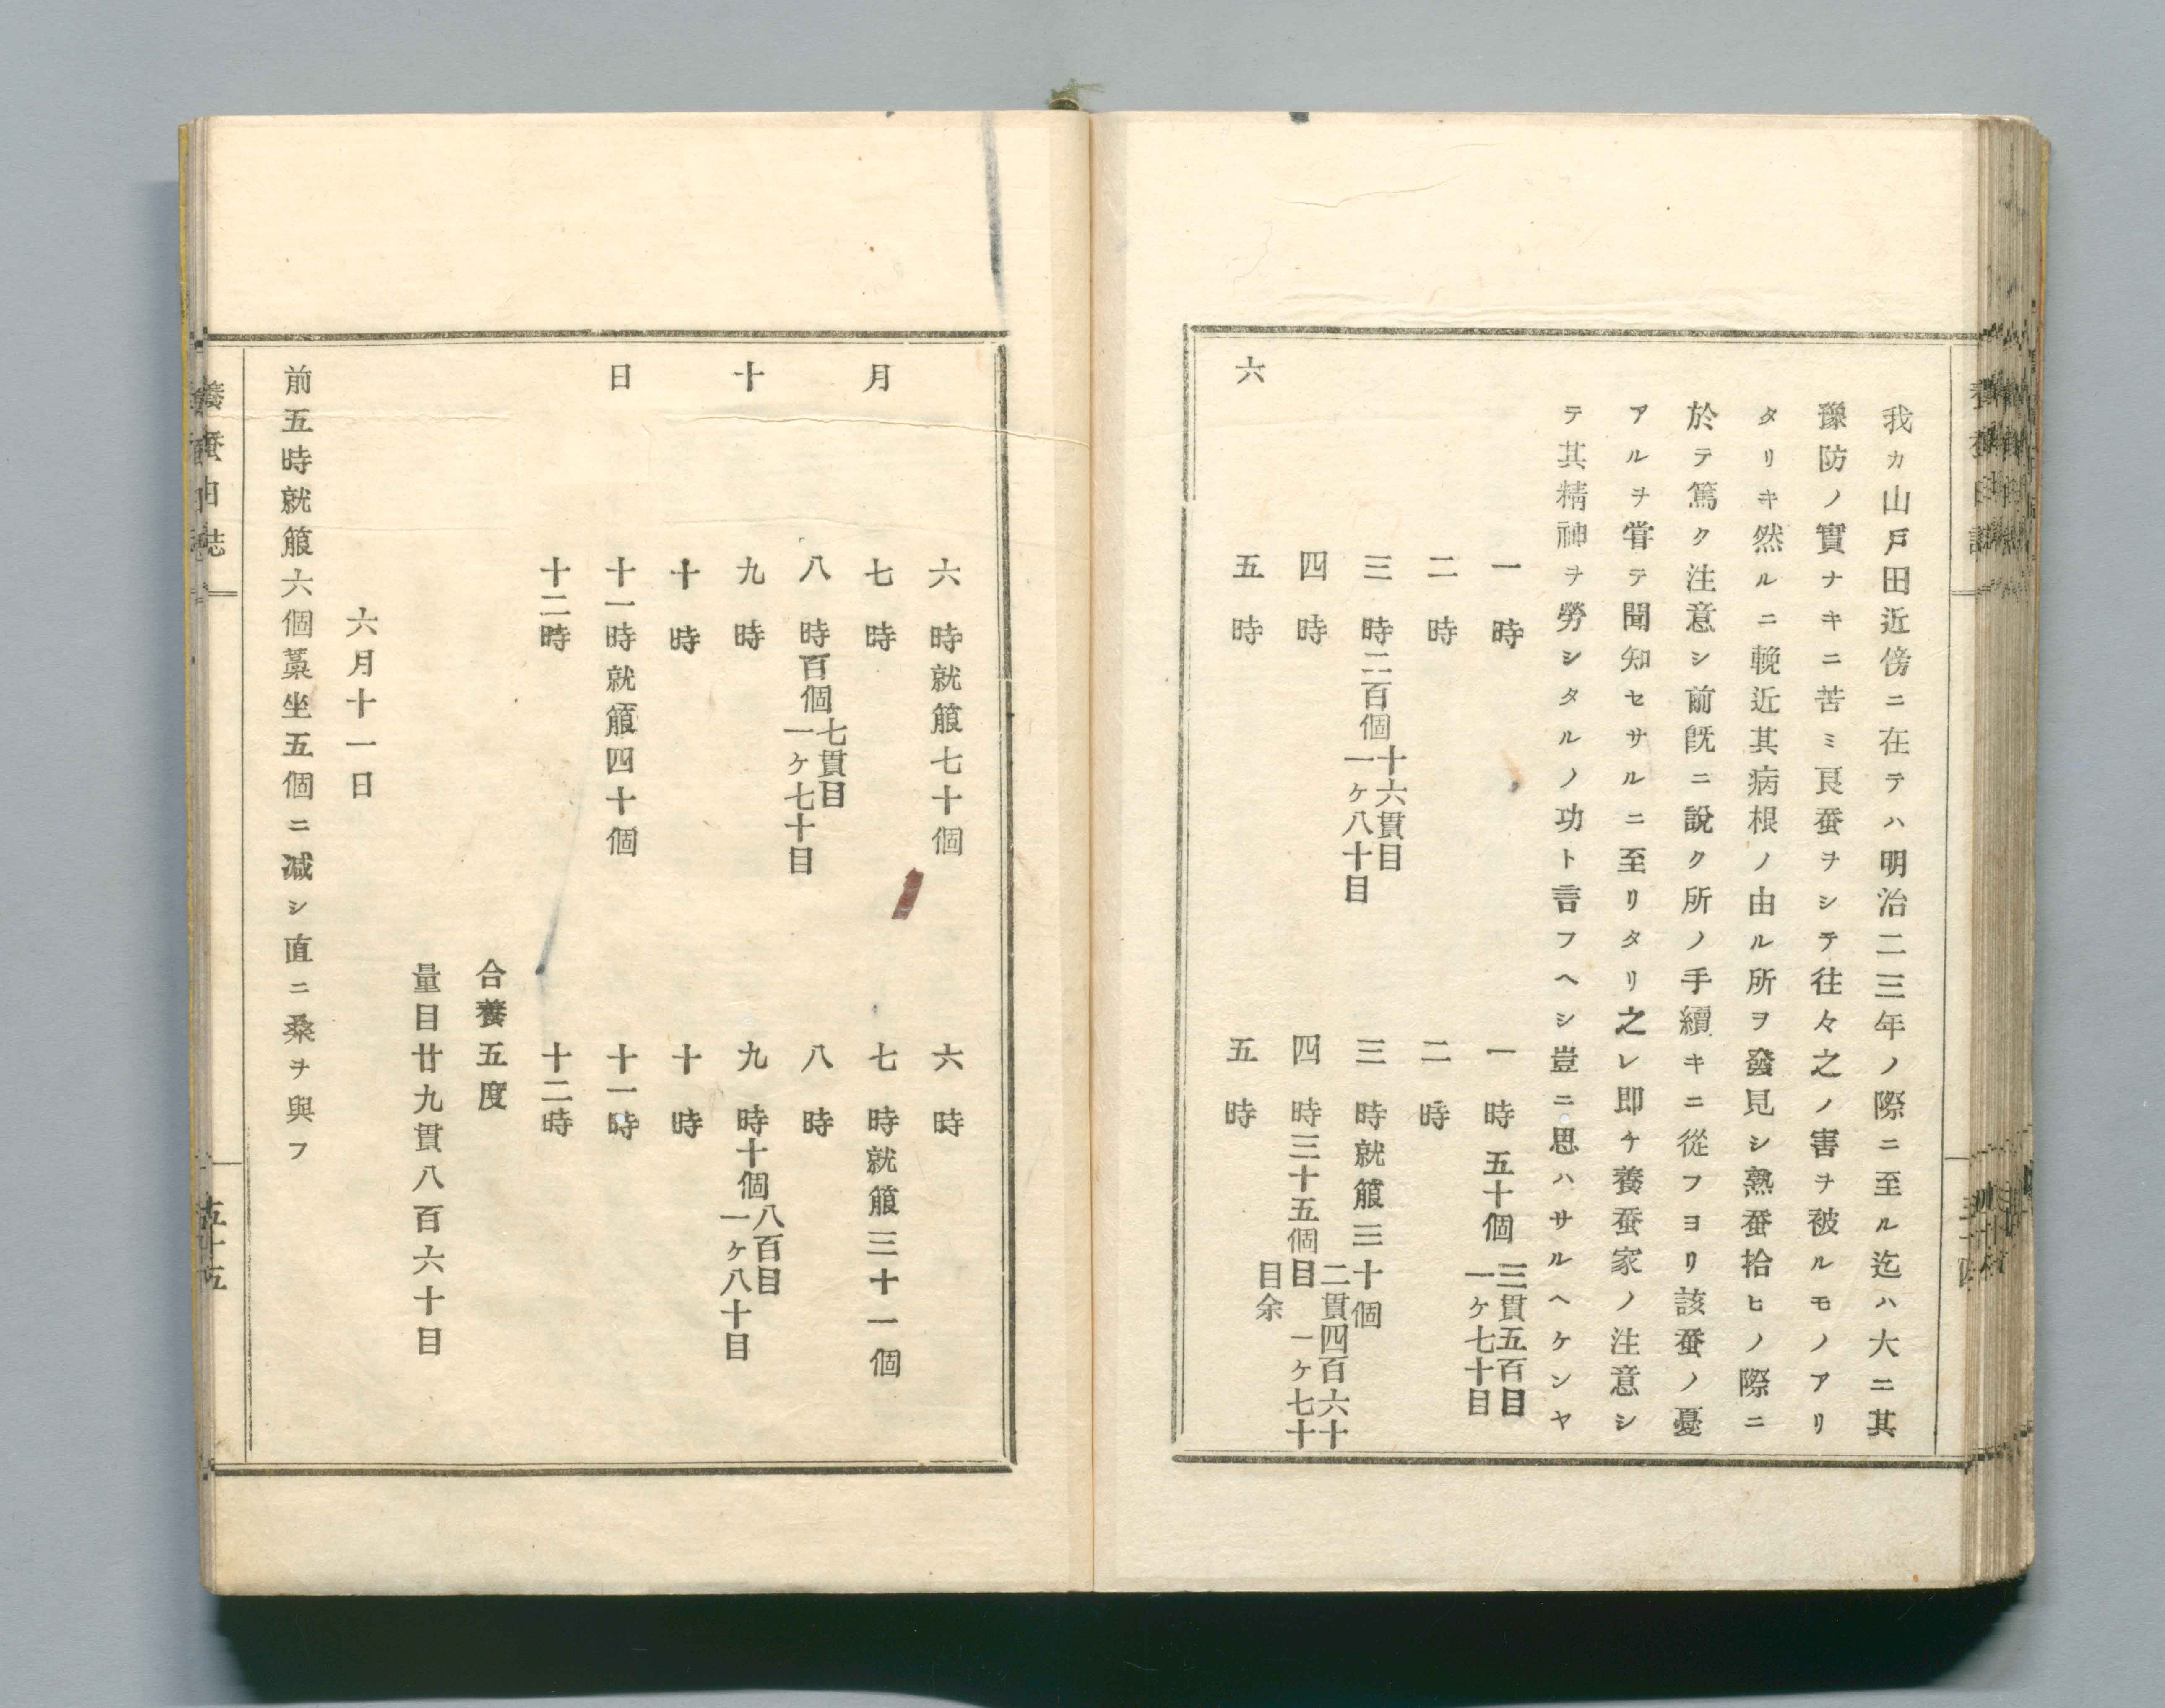 我カ山戸田近傍ニ在テハ明治二三年ノ際ニ至ル迄ハ大ニ其
豫防ノ實ナキニ苦ミ良蚕ヲシテ往々之ノ害ヲ被ルモノアリ
タリキ然ルニ輓近其病根ノ由ル所ヲ發見シ熟蚕拾ヒノ際ニ
於テ篤ク注意シ前既ニ說ク所ノ手續キニ從フヨリ該蚕ノ憂
アルヲ甞テ聞知セサルニ至リタリ之レ即ケ養蚕家ノ注意シ
テ其精神ヲ勞シタルノ功ト言フヘシ豈ニ思ハサルヘケンヤ
一時
一時 五十個 三貫五百目 一ケ七十目
二時
二時
三時二百個 十六貫目 一ケ八十目
三時就䈰三十個
四時
四時三十五個 二貫四百六十目 一ケ七十目余
六
五時
五時
六時就䈰七十個
六時
月
七時
七時就䈰三十一個
八時百個 七貫目 一ケ七十目
八時
十
九時
九時十個 八百目 一ケ八十目
十時
十時
日
十一時就䈰四十個
十一時
十二時
十二時
合養五度
量目廿九貫八百六十目
六月十一日
前五時就䈰六個藁坐五個ニ减シ直ニ桑ヲ與フ
養蚕日誌
五十五